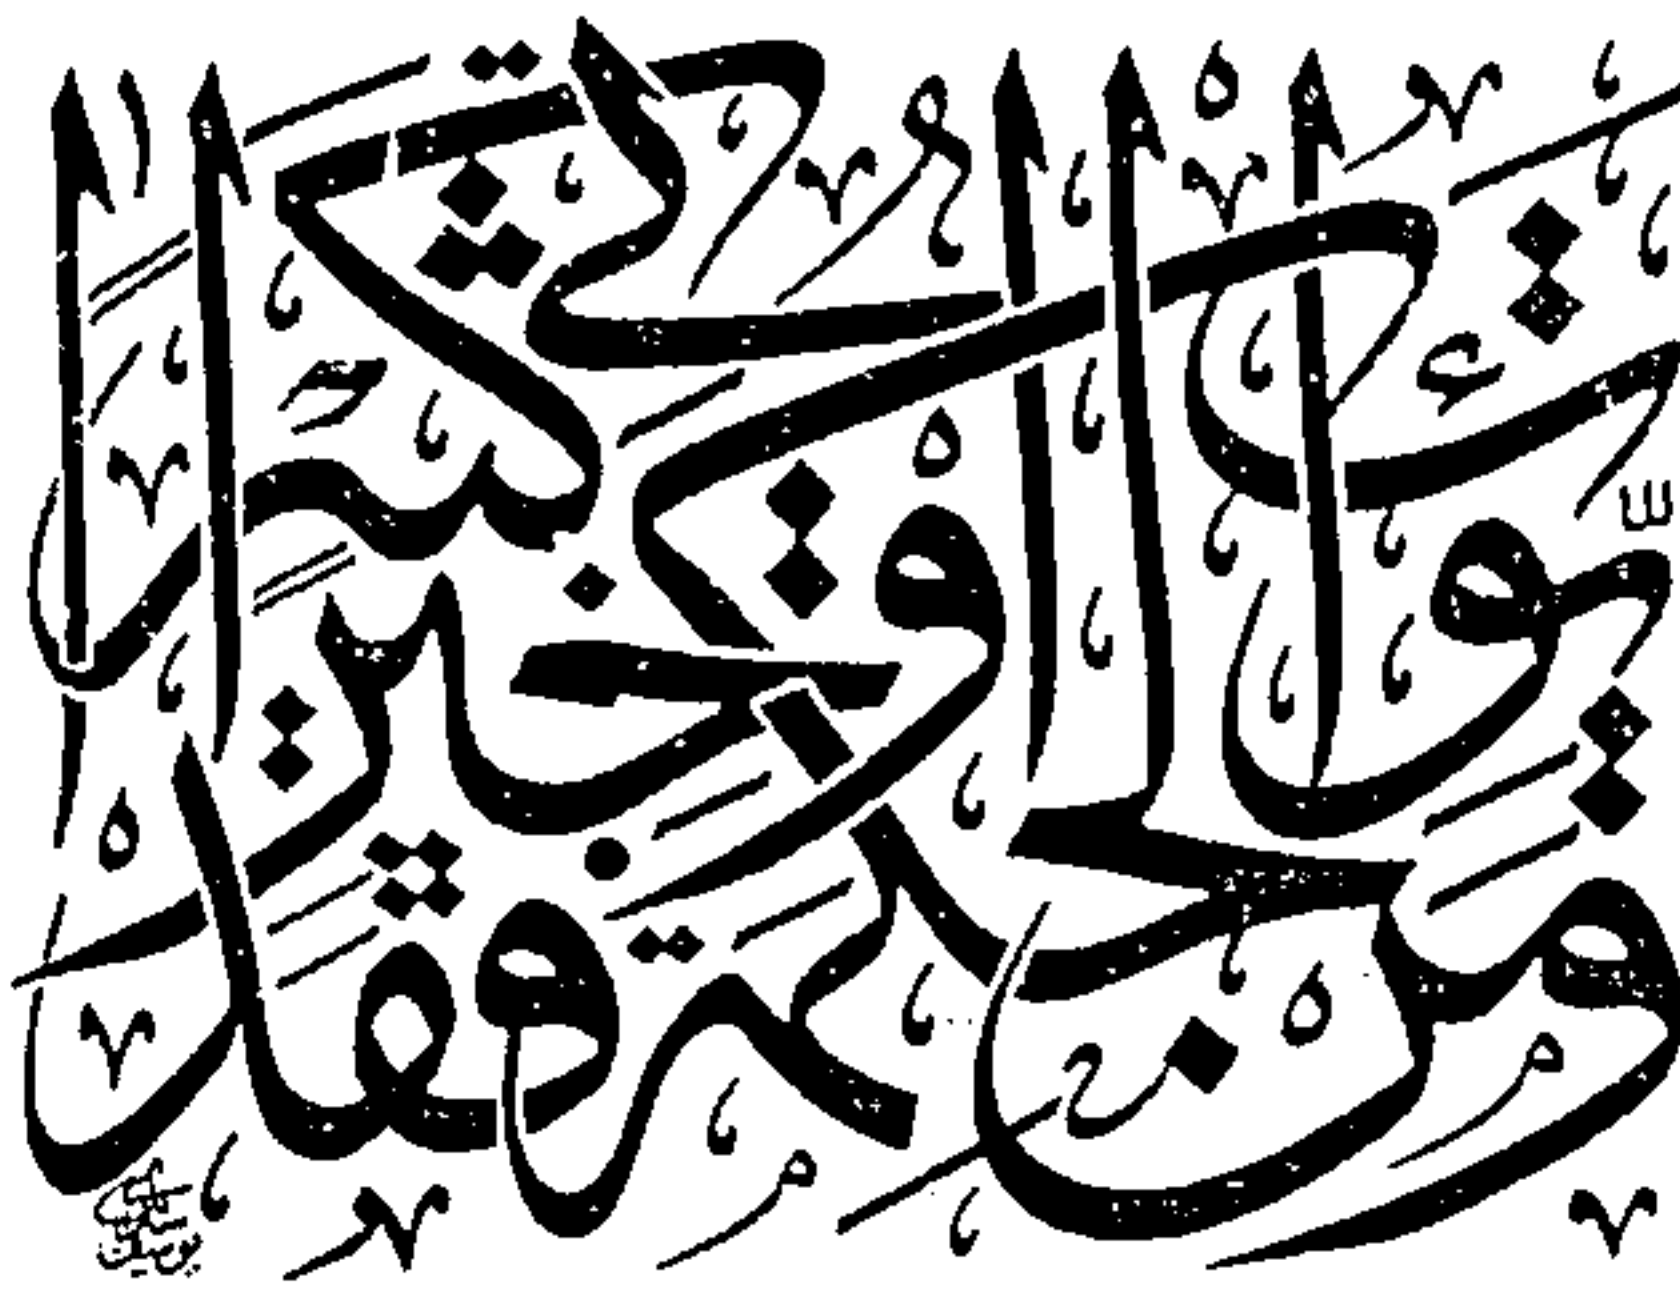 ومن يؤت الحكمة فقد اوتي خيرا كثيرا